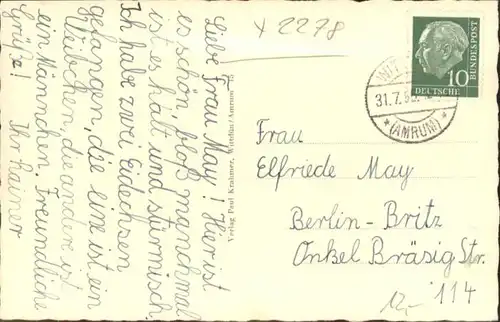 Liebe Frau May! Hier ist
es schön, bloß manchmal
ist es kalt und stürmisch.
Ich habe zwei Eidechsen
gefangen, die eine ist ein
Weibchen, die andere ist
ein Männchen. Freundliche
Grüße! Ihr Rainer
Verlag Paul Krahmer, Wittdün/Amrum
x 2278
10
DEUTSCHE
BUNDESPOST
31.7.
*(AMRUM)*
Frau
Elfriede May
Berlin-Britz
Onkel Bräsig Str.
114
12,-